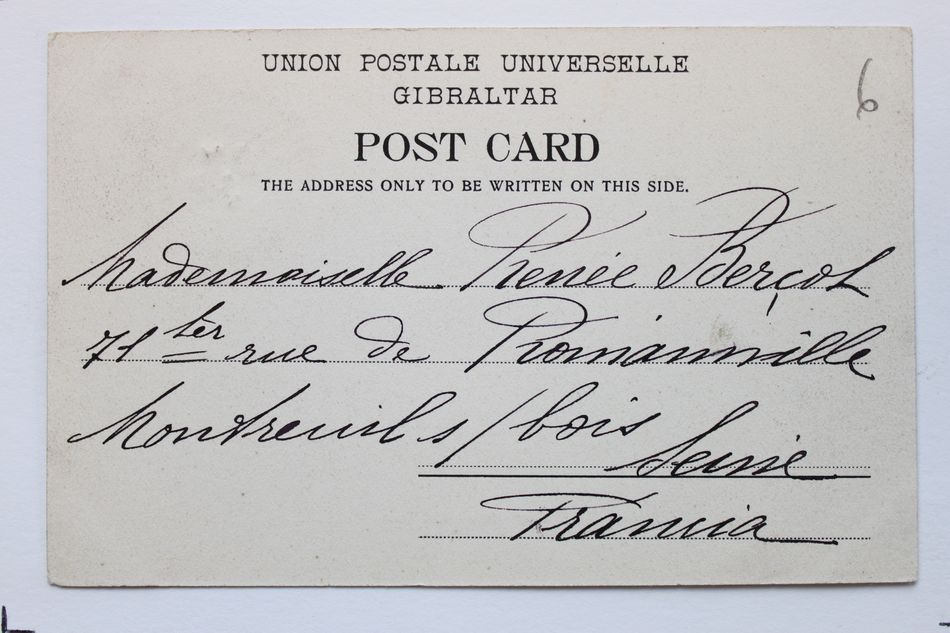 UNION POSTALE UNIVERSELLE
GIBRALTAR
POST CARD
THE ADDRESS ONLY TO BE WRITTEN ON THIS SIDE.
6
Mademoiselle Renée Berçot
71 ter rue de Romainville
Montreuil s/bois
Seine
Francia